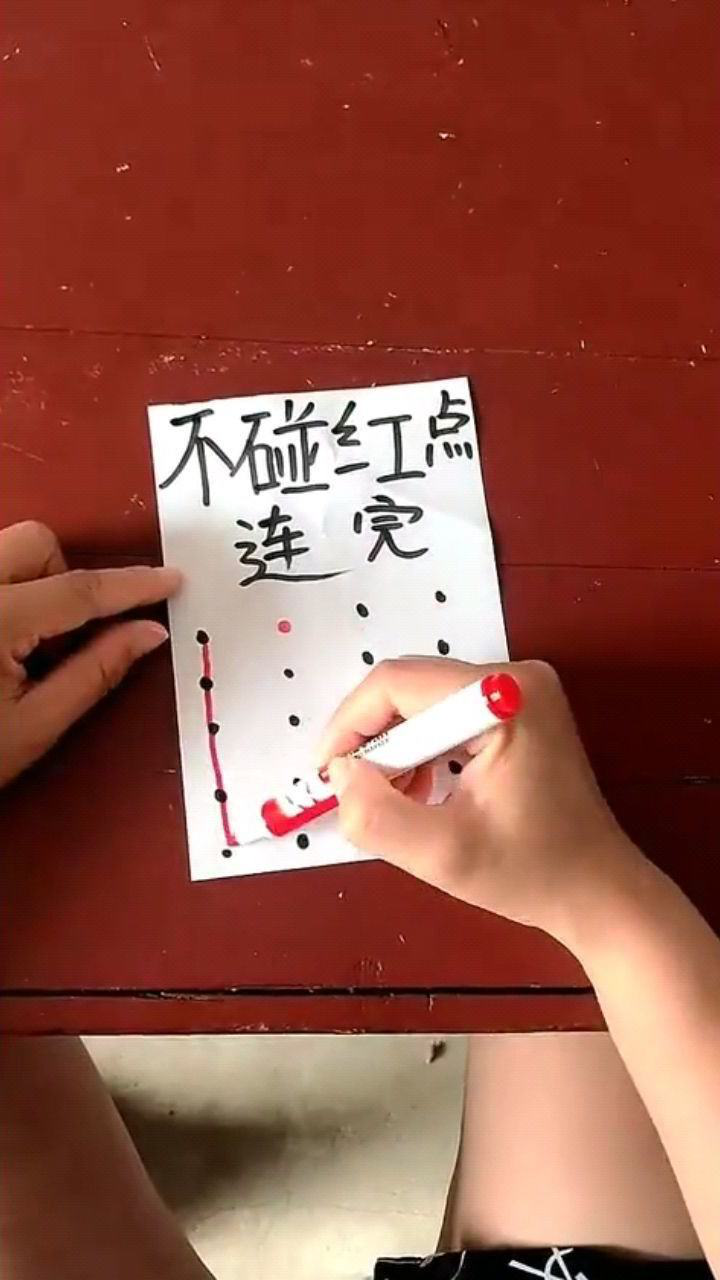 不碰红点
连完